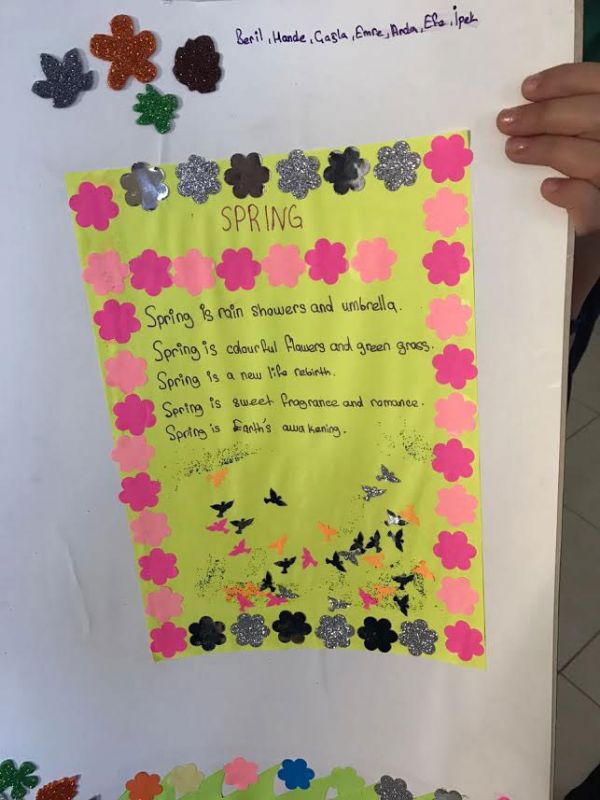 Beril, Hande, Çağla, Emre, Arda, Efe, İpek
SPRING
Spring is rain showers and umbrella.
Spring is colourful flowers and green grass.
Spring is a new life rebirth.
Spring is sweet fragrance and romance.
Spring is Earth's awakening.